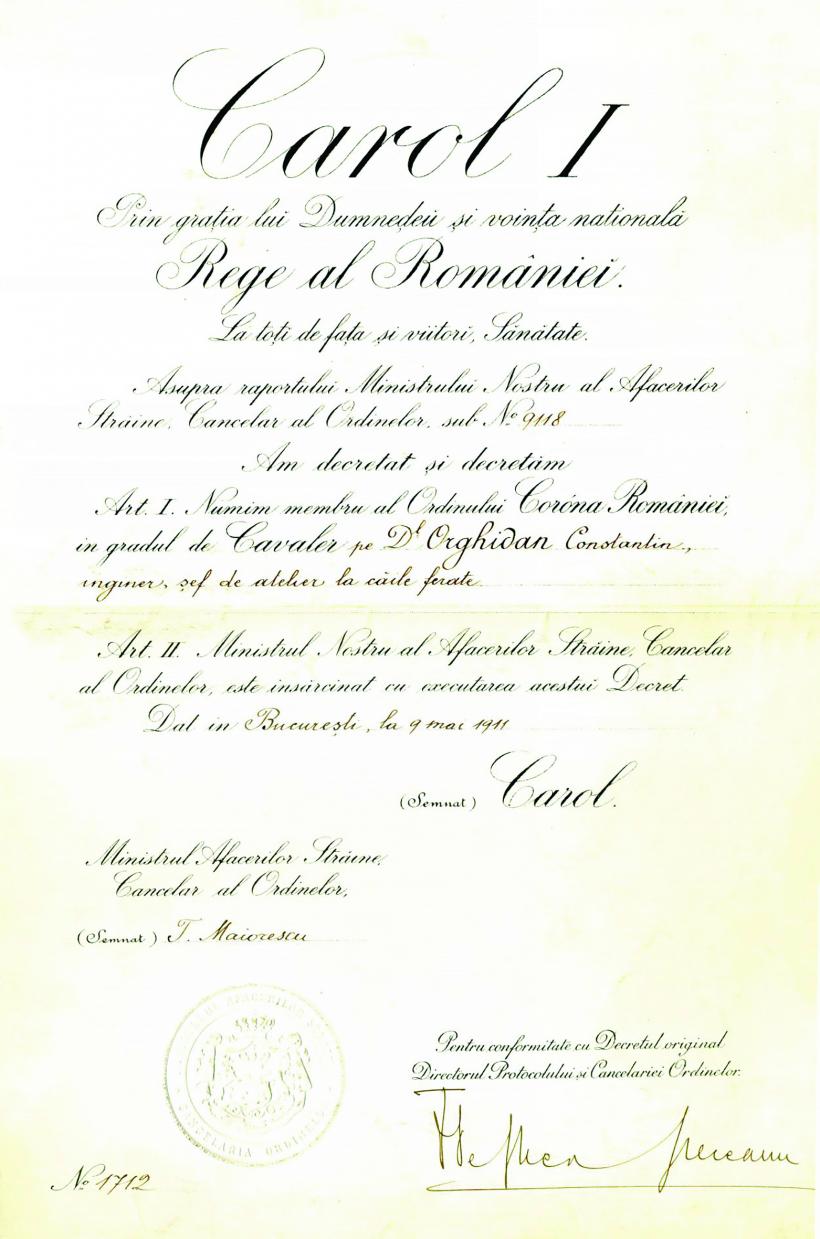 Carol I
Prin grația lui Dumnedeŭ și voința națională
Rege al Românieĭ.
La toți de fața și viitori, Sănătate.
Asupra raportului Ministrului Nostru al Afacerilor
Străine, Cancelar al Ordinelor, sub Nº 9118
Am decretat și decretăm
Art. I. Numim membru al Ordinului Coróna Românieĭ,
in gradul de Cavaler pe Dl Orghidan Constantin,
inginer, șef de atelier la căile ferate.
Art. II. Ministrul Nostru al Afacerilor Străine, Cancelar
al Ordinelor, este insărcinat cu executarea acestui Decret.
Dat in București, la 9 mai 1911
(Semnat) Carol.
Ministrul Afacerilor Străine,
Cancelar al Ordinelor,
(Semnat) T. Maiorescu
AFACERILOR
CANCELARIA ORDINELOR
Pentru conformitate cu Decretul original
Directorul Protocolului și Cancelariei Ordinelor.
Nº 1712